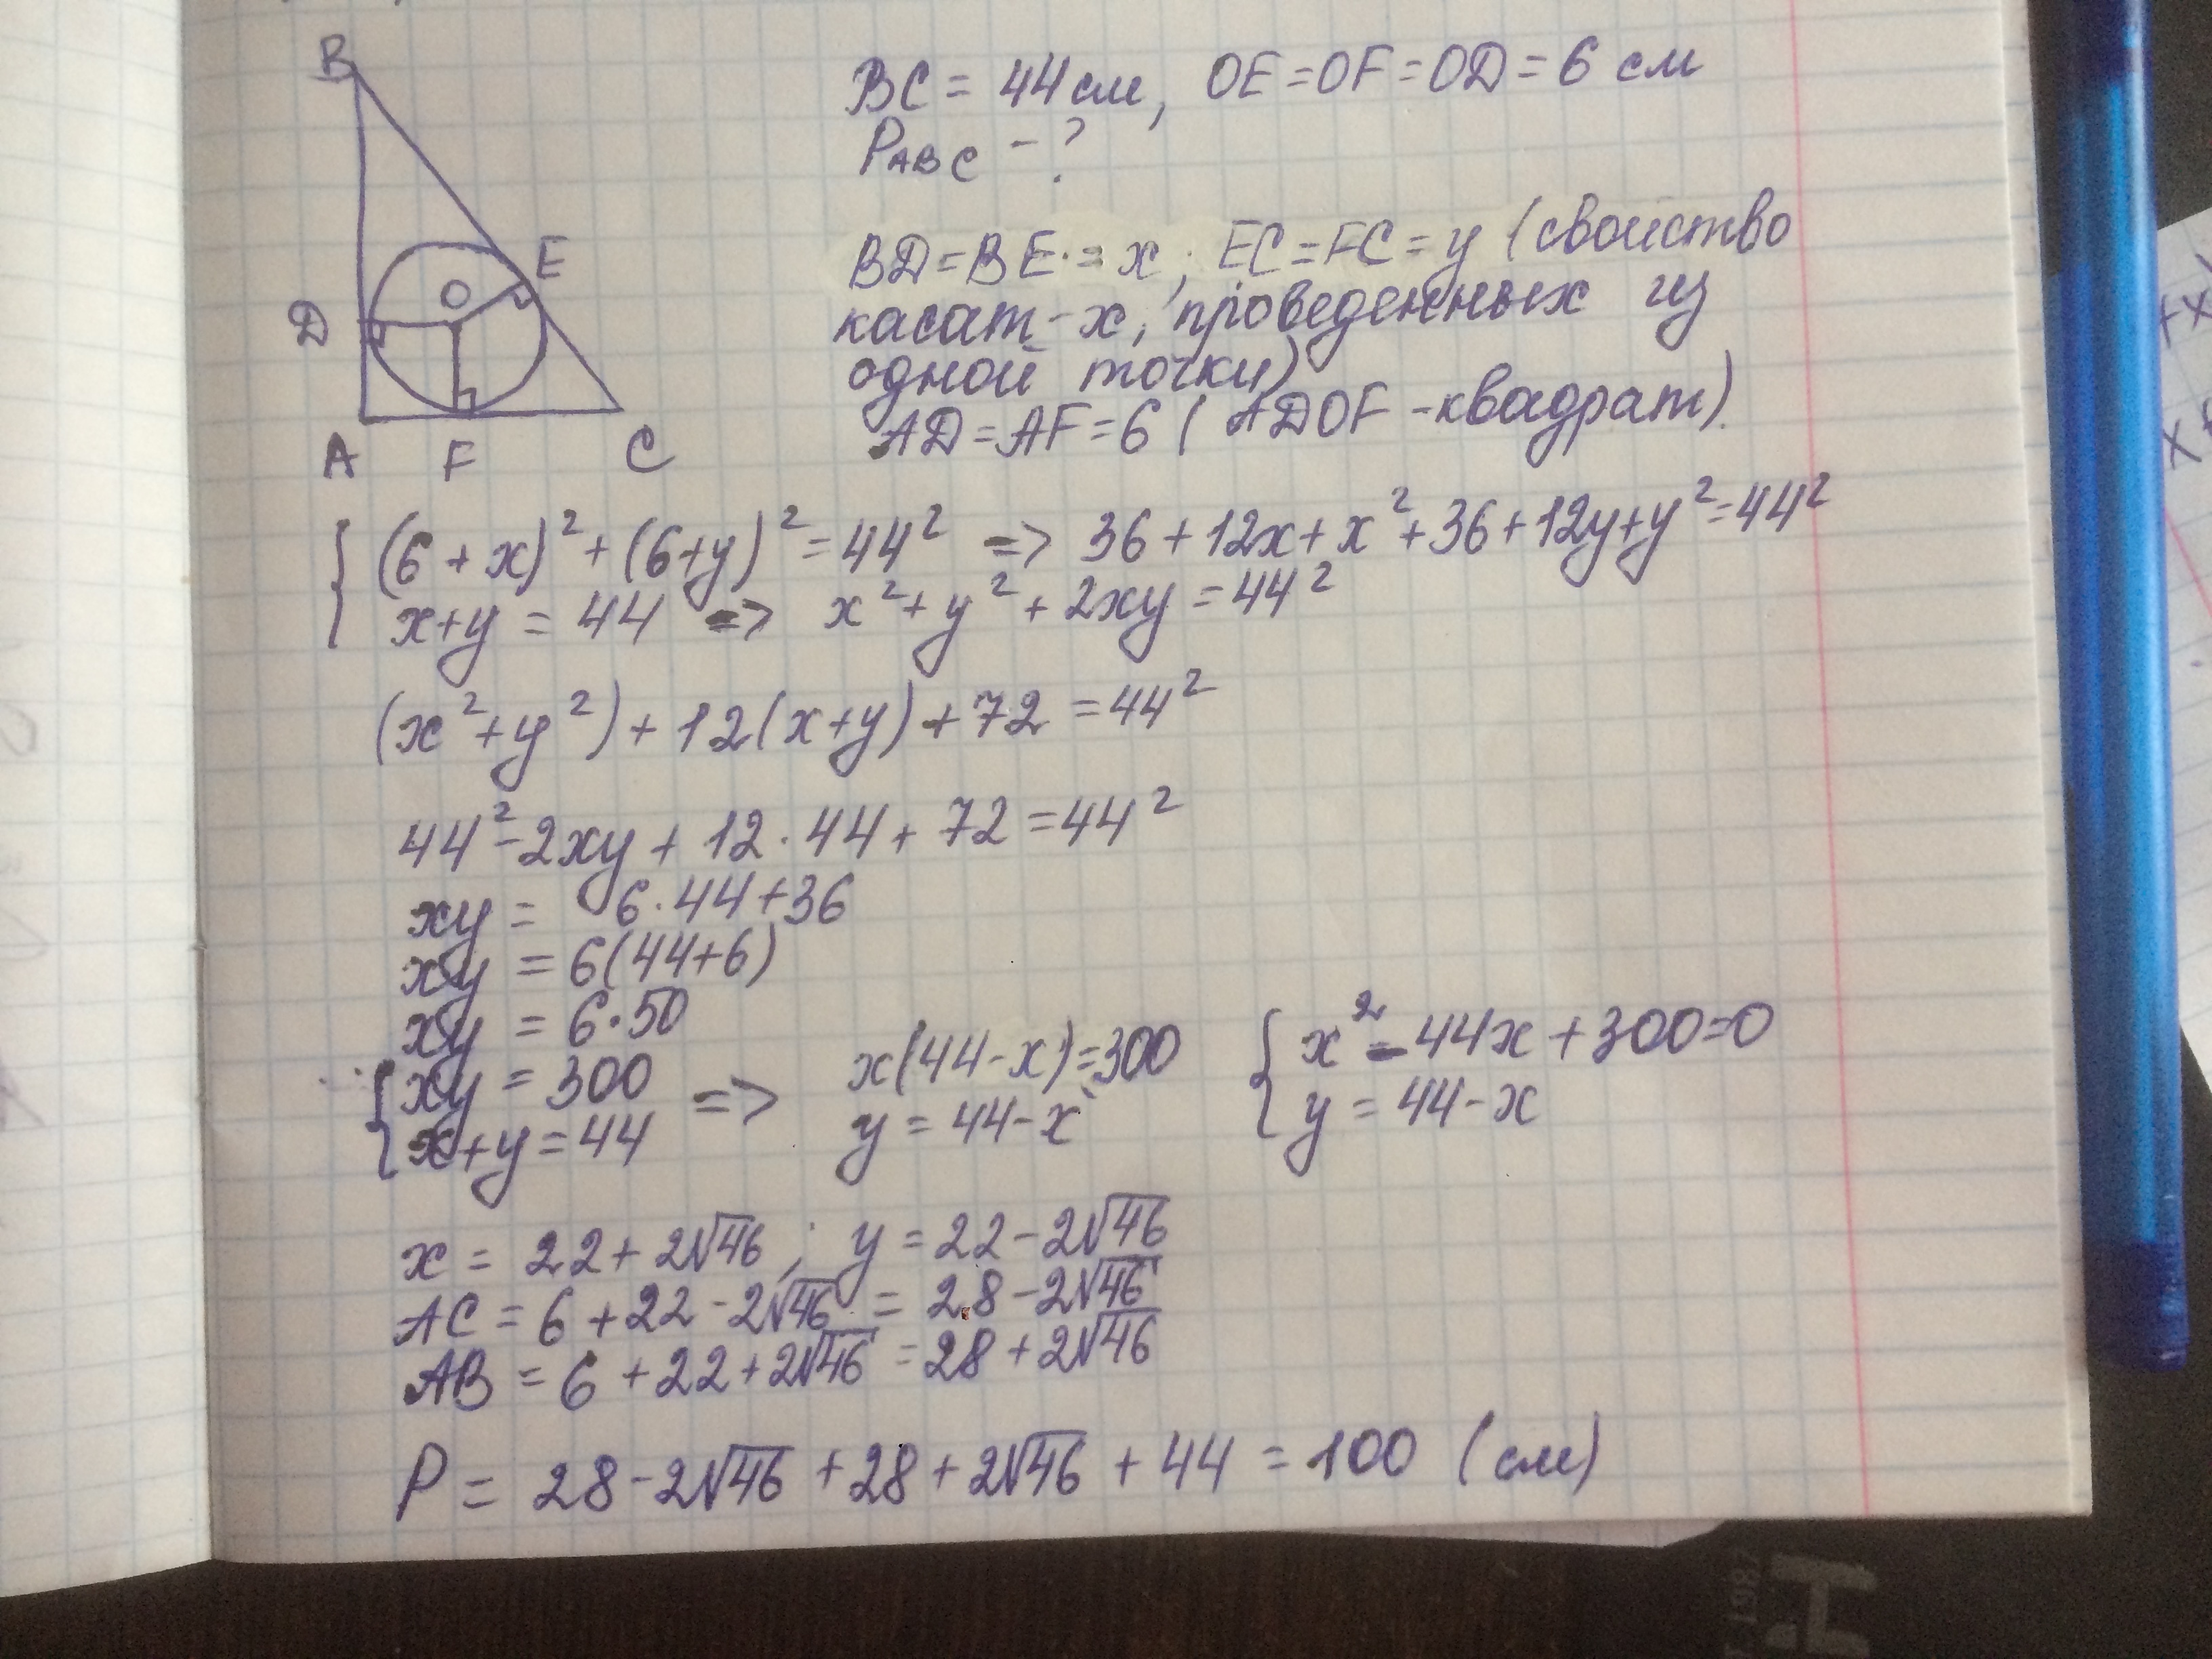 B
E
O
D
A F C
BC = 44 см, OE = OF = OD = 6 см
P_ABC - ?
BD = BE = x; EC = FC = y (свойство
касат-х, проведенных из
одной точки)
AD = AF = 6 (ADOF - квадрат).
{ (6 + x)² + (6+y)² = 44² => 36 + 12x + x² + 36 + 12y + y² = 44²
x+y = 44 => x² + y² + 2xy = 44²
(x² + y²) + 12(x+y) + 72 = 44²
44² - 2xy + 12 · 44 + 72 = 44²
xy = 6 · 44 + 36
xy = 6(44+6)
xy = 6 · 50
{ xy = 300 => x(44-x) = 300 { x² - 44x + 300 = 0
x + y = 44 y = 44 - x y = 44 - x
x = 22 + 2√46 ; y = 22 - 2√46
AC = 6 + 22 - 2√46 = 28 - 2√46
AB = 6 + 22 + 2√46 = 28 + 2√46
P = 28 - 2√46 + 28 + 2√46 + 44 = 100 (см)